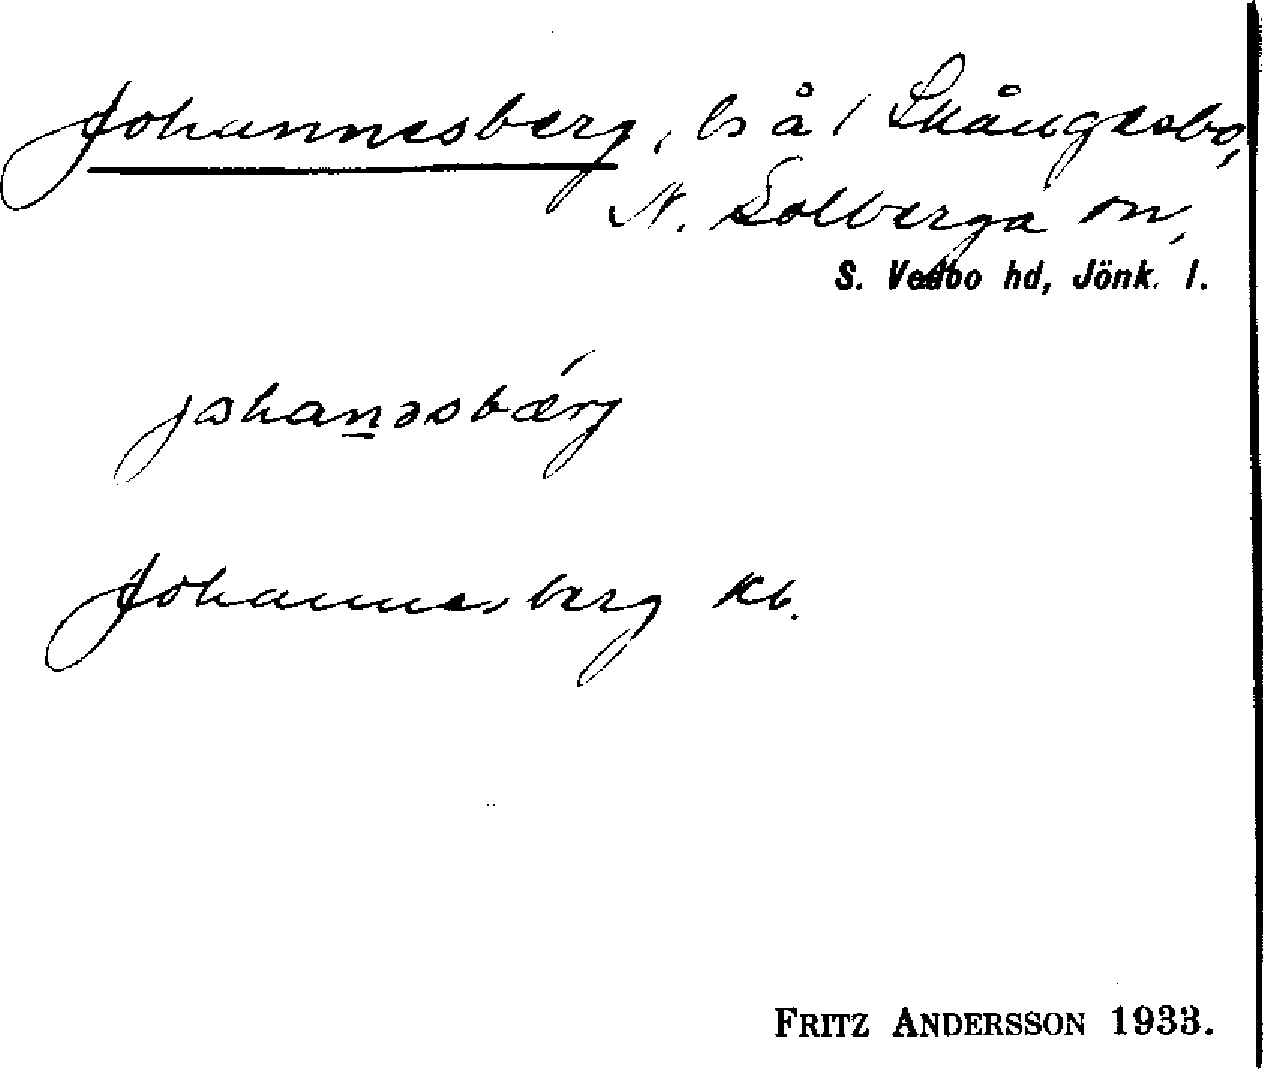 Johannesberg, ls å / Skångesbo,
N. Solberga sn,
S. Vedbo hd, Jönk. l.
johanəsbǽrg
Johannesberg Kb.
FRITZ ANDERSSON 1933.